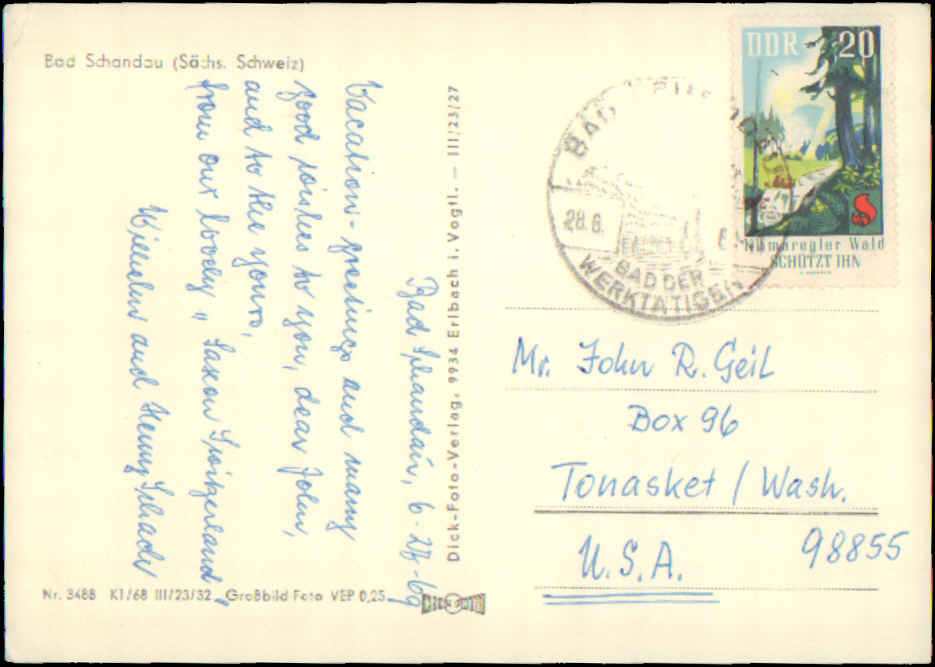 Bad Schandau (Sächs. Schweiz)
Bad Schandau, 6-28-69
Vacation-greetings and many
good wishes to you, dear John,
and to the yours,
from our lovely „Saxon Switzerland"
Wilhelm and Henny Schade
Dick-Foto-Verlag, 9934 Erlbach i. Vogtl. — III/23/27
Nr. 3488 K1/68 III/23/32 Großbild Foto VEP 0,25
DICK FOTO
DDR 20
Klimaregler Wald
SCHÜTZT IHN
BAD
28.6.
BAD DER
WERKTÄTIGEN
Mr. John R. Geil
Box 96
Tonasket / Wash.
98855
U.S.A.